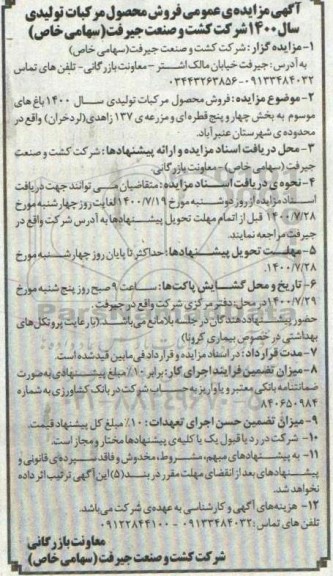 آگهی مزایده‌ی عمومی فروش محصول مرکبات تولیدی
سال ۱۴۰۰ شرکت کشت و صنعت جیرفت (سهامی خاص)
۱- مزایده گزار: شرکت کشت و صنعت جیرفت (سهامی خاص)
به آدرس: جیرفت خیابان مالک اشتر - معاونت بازرگانی - تلفن های تماس
۰۹۱۳۳۴۸۴۰۳۲ - ۰۳۴۴۳۲۶۳۸۵۶
۲- موضوع مزایده: فروش محصول مرکبات تولیدی سال ۱۴۰۰ باغ های
موسوم به بخش چهار و پنج قطره ای و مزرعه ی ۱۳۷ زاهدی (لردخران) واقع در
محدوده ی شهرستان عنبرآباد.
۳- محل دریافت اسناد مزایده و ارائه پیشنهادها: شرکت کشت و صنعت
جیرفت (سهامی خاص) - معاونت بازرگانی
۴- نحوه ی دریافت اسناد مزایده: متقاضیان می توانند جهت دریافت
اسناد مزایده از روز دوشنبه مورخ ۱۴۰۰/۷/۱۹ لغایت روز چهارشنبه مورخ
۱۴۰۰/۷/۲۸ قبل از اتمام مهلت تحویل پیشنهادها به آدرس شرکت واقع در
جیرفت مراجعه نمایند.
۵- مهلت تحویل پیشنهادها: حداکثر تا پایان روز چهارشنبه مورخ
۱۴۰۰/۷/۲۸.
۶- تاریخ و محل گشایش پاکت‌ها: ساعت ۹ صبح روز پنج شنبه مورخ
۱۴۰۰/۷/۲۹ در محل: دفتر مرکزی شرکت واقع در جیرفت.
حضور پیشنهاددهندگان در جلسه بلامانع می باشد. (با رعایت پروتکل های
بهداشتی در خصوص بیماری کرونا)
۷- مدت قرارداد: در اسناد مزایده و قرارداد فی مابین قید شده است.
۸- میزان تضمین فرایند اجرای کار: برابر ۱۰٪ مبلغ پیشنهادی به صورت
ضمانتنامه بانکی معتبر و یا واریز به حساب شرکت در بانک کشاورزی به شماره
۸۴۰۶۵۰۹۸۴
۹- میزان تضمین حسن اجرای تعهدات: ۱۰٪ مبلغ کل پیشنهاد قیمت.
۱۰- شرکت در رد یا قبول یک یا کلیه ی پیشنهادها مختار و مجاز است.
۱۱- به پیشنهادهای مبهم، مشروط، مخدوش و فاقد سپرده ی قانونی و
پیشنهادهای بعد از انقضای مهلت مقرر در بند (۵) این آگهی ترتیب اثر داده
نخواهد شد.
۱۲- هزینه های آگهی و کارشناسی به عهده ی شرکت می باشد.
تلفن های تماس: ۰۹۱۳۳۴۸۴۰۳۲ - ۰۹۱۲۲۸۴۴۱۰۰
معاونت بازرگانی
شرکت کشت و صنعت جیرفت (سهامی خاص)